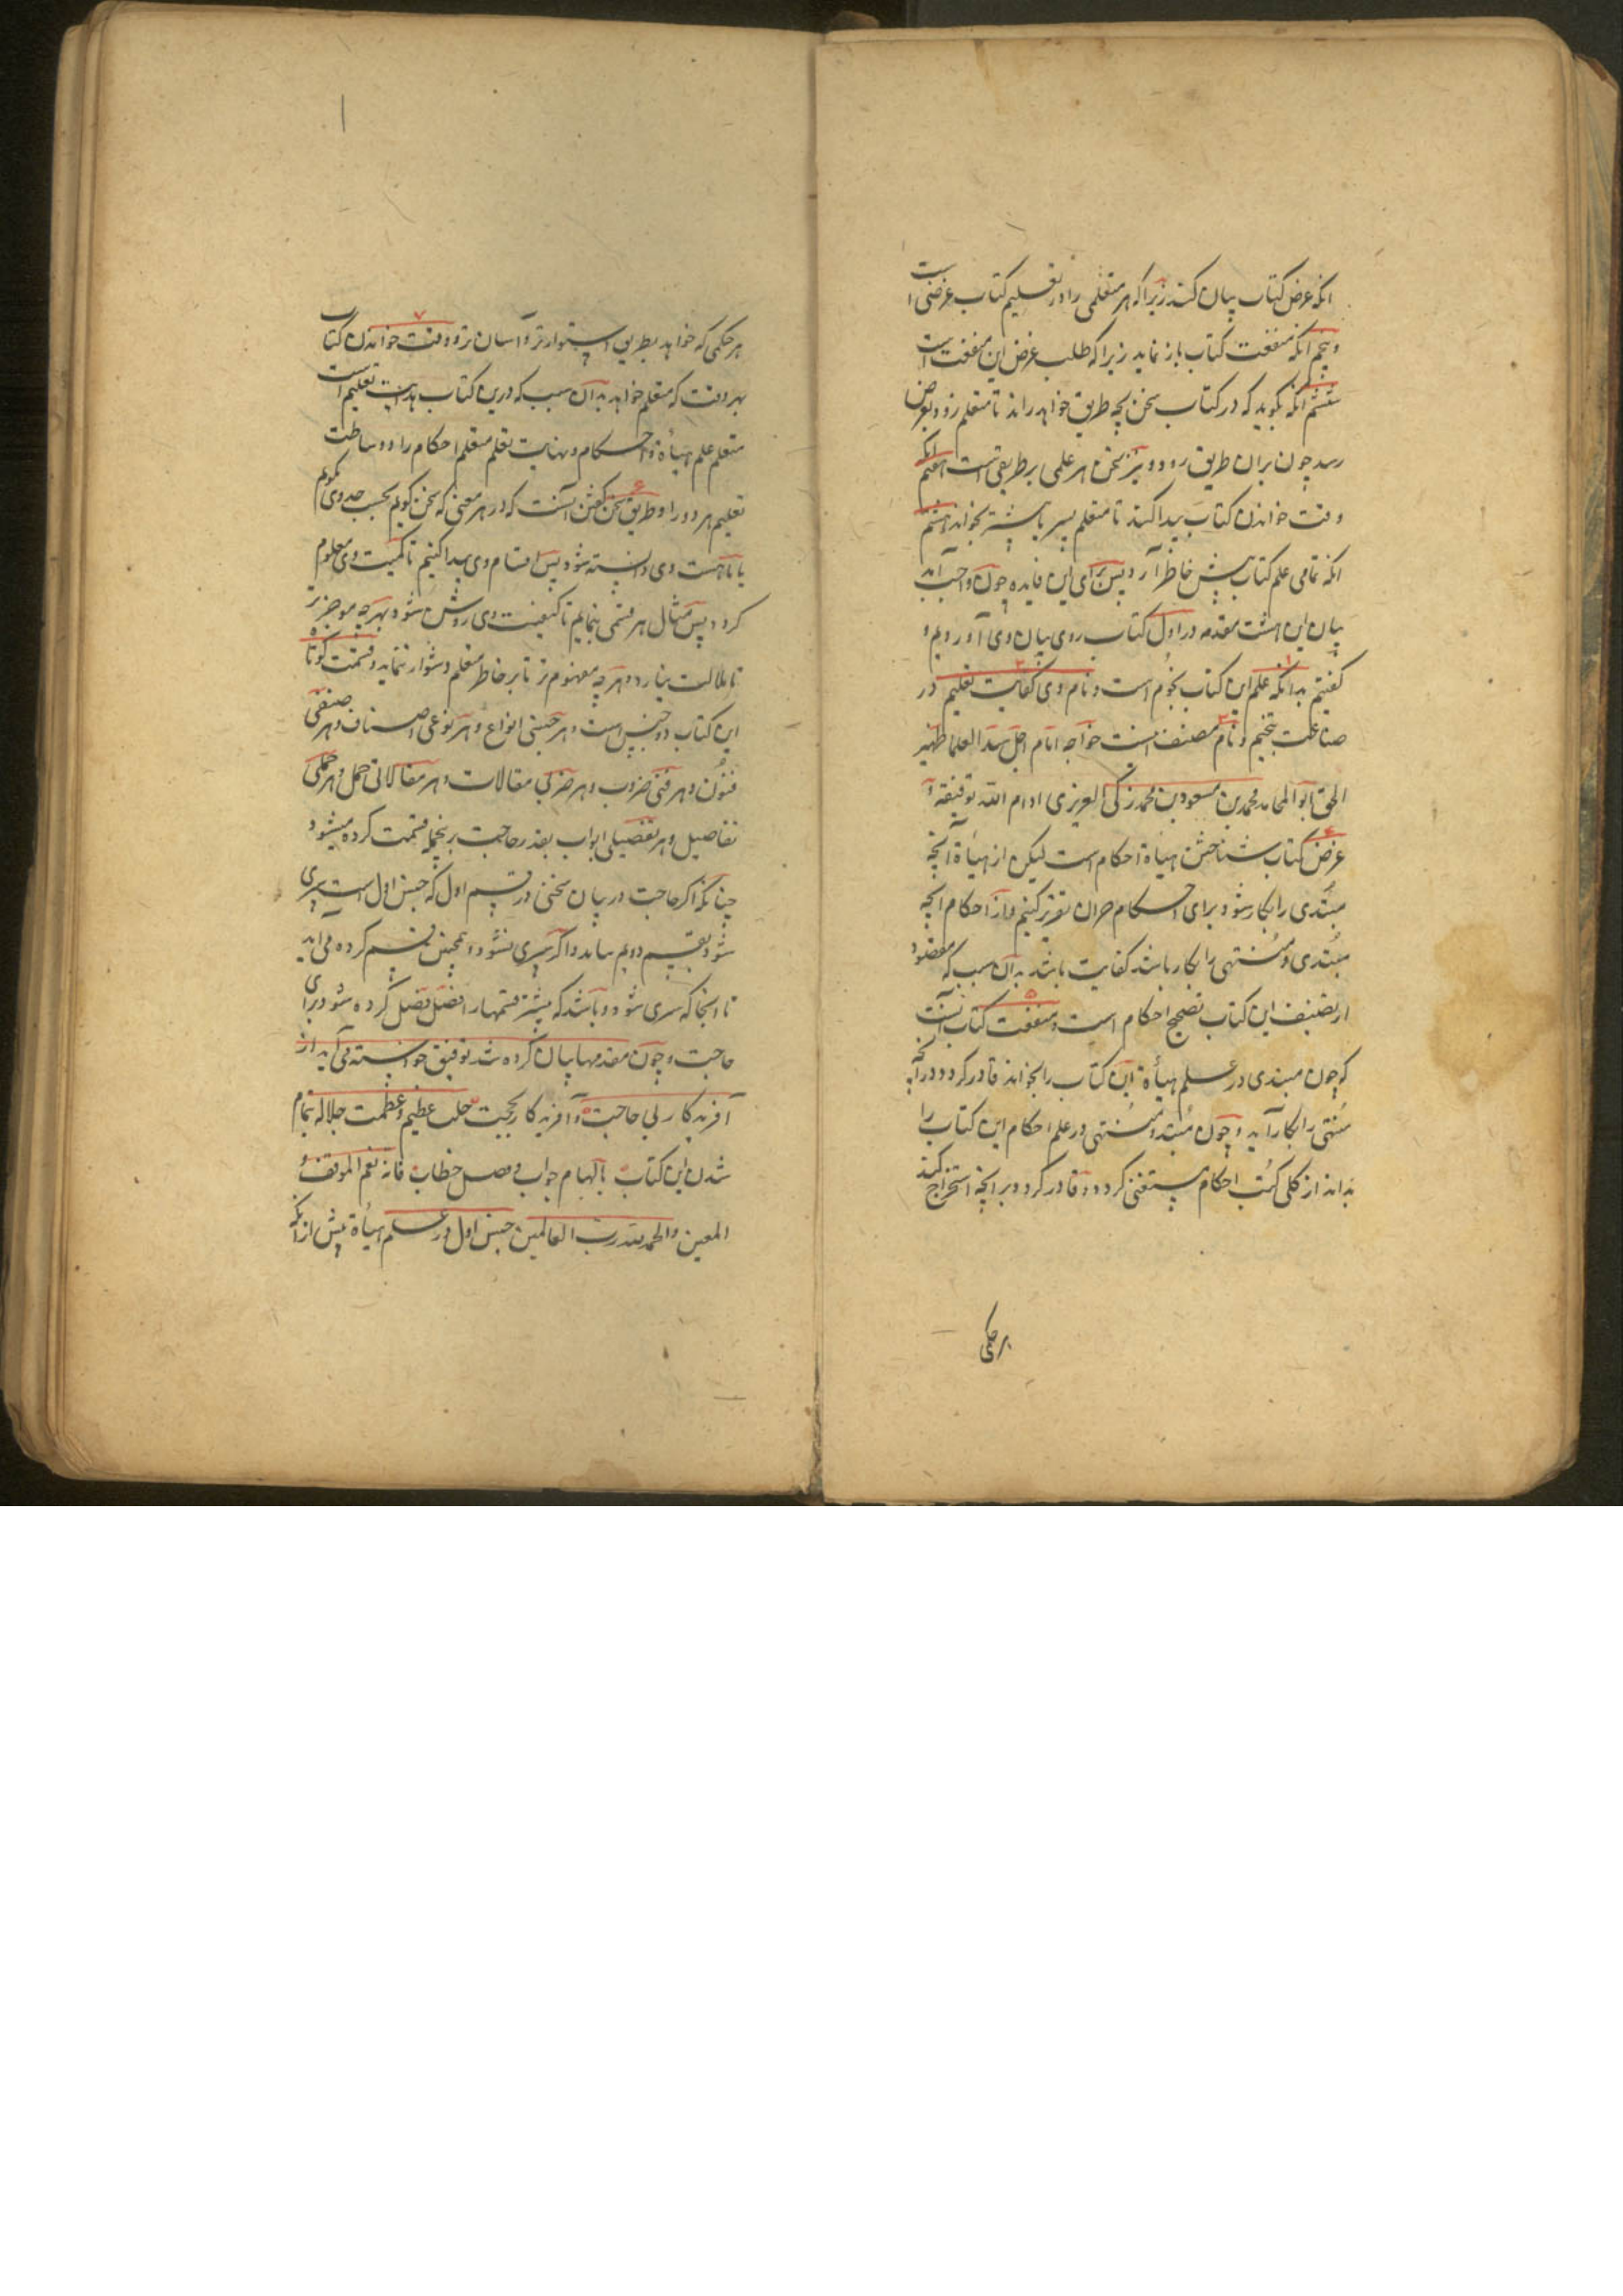 انکه غرض کتاب بیان کند زیرا که هر متعلمی را در تعلیم کتاب غرضی است
و پنجم انکه منفعت کتاب باز نماید زیرا که طلب غرض این منفعت است
ششم انکه بکوید که در کتاب سخن بچه طریق خواهد راند تا متعلم زود بغرض
رسد چون بران طریق رود و نیز سخن هر علمی بر طریقی است هفتم انکه
وقت خواندن کتاب پیدا کند تا متعلم پس یا پیشتر نخواند و هشتم
انکه تمامی علم کتاب پیش خاطر آرد پس برای این فایده چون واجب آمد
بیان این هشت مقدمه در اول کتاب روی بیان وی آوردیم و
کفتیم بدانکه علم این کتاب نجوم است و نام وی کفایت تعلیم در
صناعت تنجیم و نام مصنف اینست خواجه امام اجل سید العلما ظهیر
الحق ابو المحامد محمد بن مسعود بن محمد زکی العزیزی ادام الله توفیقه و
غرض کتاب شناختن هیاة احکام است لیکن از هیاة آنچه
مبتدی را بکار شود برای احکام جران تقریر کنیم و از احکام انچه
مبتدی و منتهی را بکار باشد کفایت باشد بدان سبب که مقصود
از تصنیف این کتاب تصحیح احکام است و منفعت کتاب آنست
که چون مبتدی در علم هیأة این کتاب را بخواند قادر کردد در آنچه
منتهی را بکار آید و چون مبتدی و منتهی در علم احکام این کتاب را
بداند از کلی کتب احکام مستغنی کردد و قادر کردد بر انچه استخراج کند
هر حکمی
هر حکمی که خواهد بطریق استوارتر و آسان تر و وقت خواندن کتاب
بهر وقت که متعلم خواهد بدان سبب که درین کتاب بدایت تعلیم است
متعلم علم هیأة و احکام و نهایت تعلم متعلم احکام را و وساطت
تعلیم هر دو را و طریق سخن کفتن آنست که در هر معنی که سخن کویم بحسب حد وی کویم
تا ماهیت وی دانسته شود پس اقسام وی پیدا کنیم تا کمیت وی معلوم
کردد پس مثال هر قسمی بنماییم تا کیفیت وی روشن شود بهر چه موجزتر
تا ملالت نیارد و هر چه مفهوم تر تا بر خاطر متعلم دشوار ننماید و قسمت کوتاه
این کتاب دو جنس است و هر جنسی انواع و هر نوعی اصناف و هر صنفی
فنون و هر فنی ضروب و هر ضربی مقالات و هر مقالاتی جمل و هر جملی
تفاصیل و هر تفصیلی ابواب بقدر حاجت برنجمله قسمت کرده میشود
چنانکه اکر حاجت در بیان سخنی در قسم اول که جنس اول است سپری
شود بقسم دویم نیاید و اکر سپری نشود و همچنین قسم کرده می آید
تا انجا که سپری شود و باشد که بیشتر قسمها را فصل فصل کرده شود برای
حاجت و چون مقدمها بیان کرده شد توفیق خواسته می آید از
آفریدکار بی حاجت و آفریدکار بحجت جلت عظیم و عظمت جلاله بتمام
شدن این کتاب بالهام جواب و فصل خطاب فانه نعم الموفق و
المعین و الحمد لله رب العالمین جنس اول در علم هیأة پیش از انکه